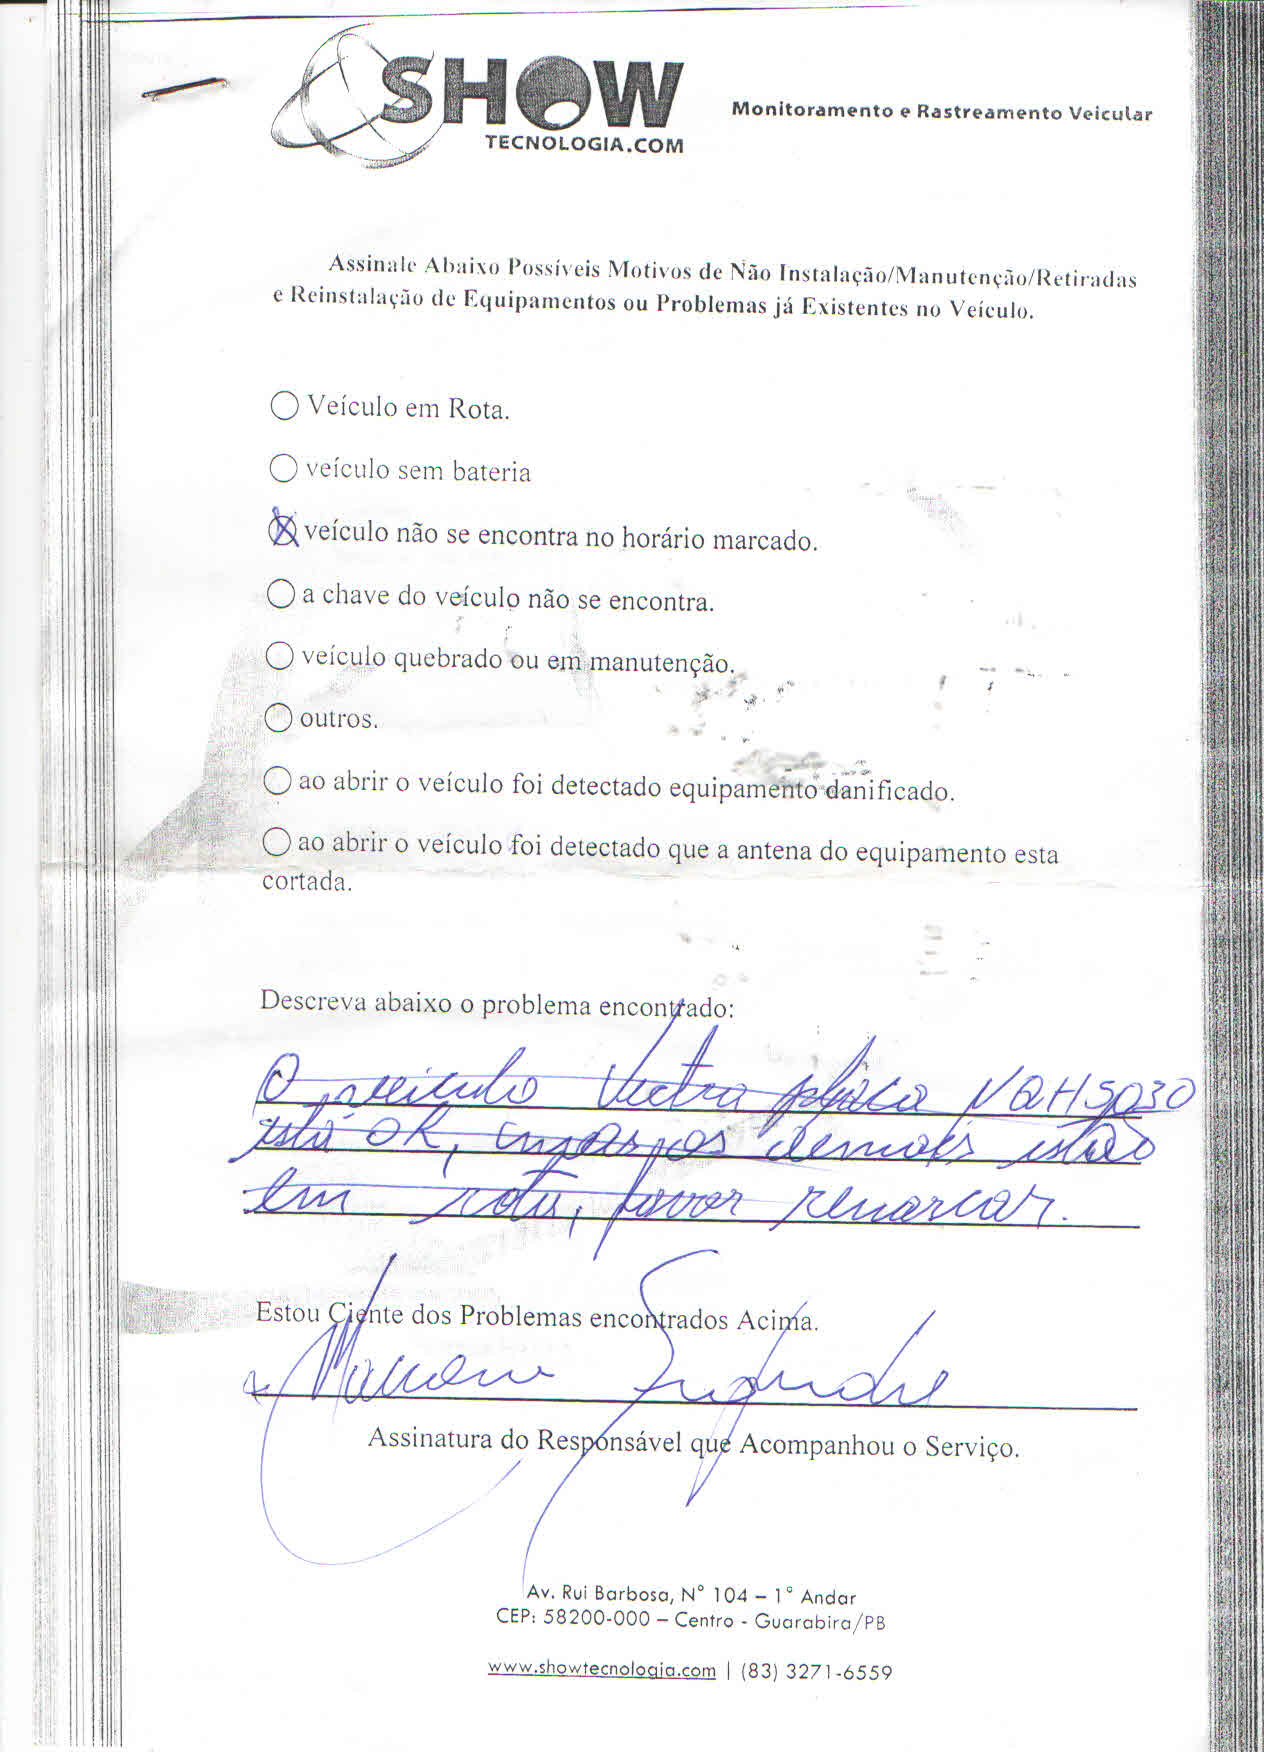 SHOW
TECNOLOGIA.COM
Monitoramento e Rastreamento Veicular
Assinale Abaixo Possíveis Motivos de Não Instalação/Manutenção/Retiradas
e Reinstalação de Equipamentos ou Problemas já Existentes no Veículo.
Veículo em Rota.
veículo sem bateria
X veículo não se encontra no horário marcado.
a chave do veículo não se encontra.
veículo quebrado ou em manutenção.
outros.
ao abrir o veículo foi detectado equipamento danificado.
ao abrir o veículo foi detectado que a antena do equipamento esta
cortada.
Descreva abaixo o problema encontrado:
O veículo Vectra placa NQH5030
está OK, os demais estão
em rota, favor remarcar.
Estou Ciente dos Problemas encontrados Acima.
Assinatura do Responsável que Acompanhou o Serviço.
Av. Rui Barbosa, N° 104 – 1° Andar
CEP: 58200-000 – Centro - Guarabira/PB
www.showtecnologia.com | (83) 3271-6559